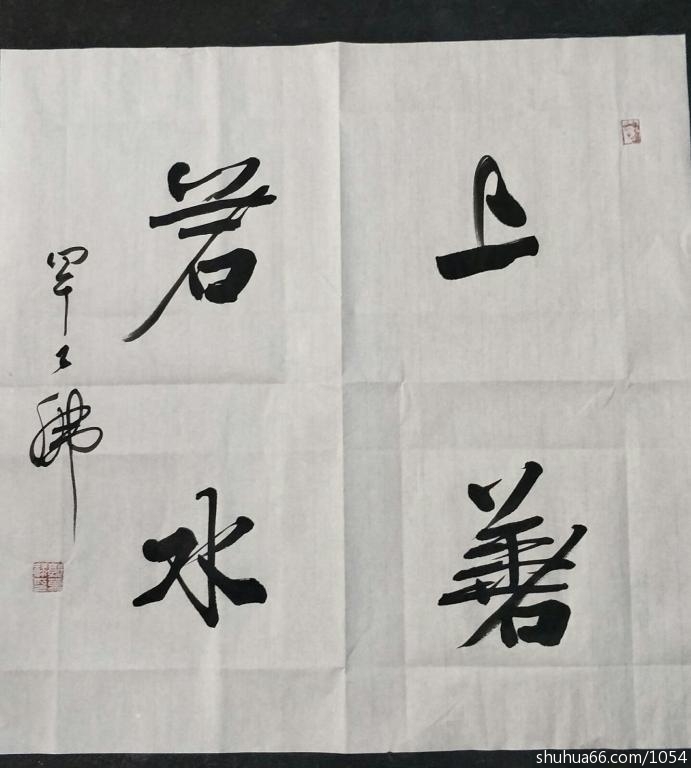 上善
若水
shuhua66.com/1054